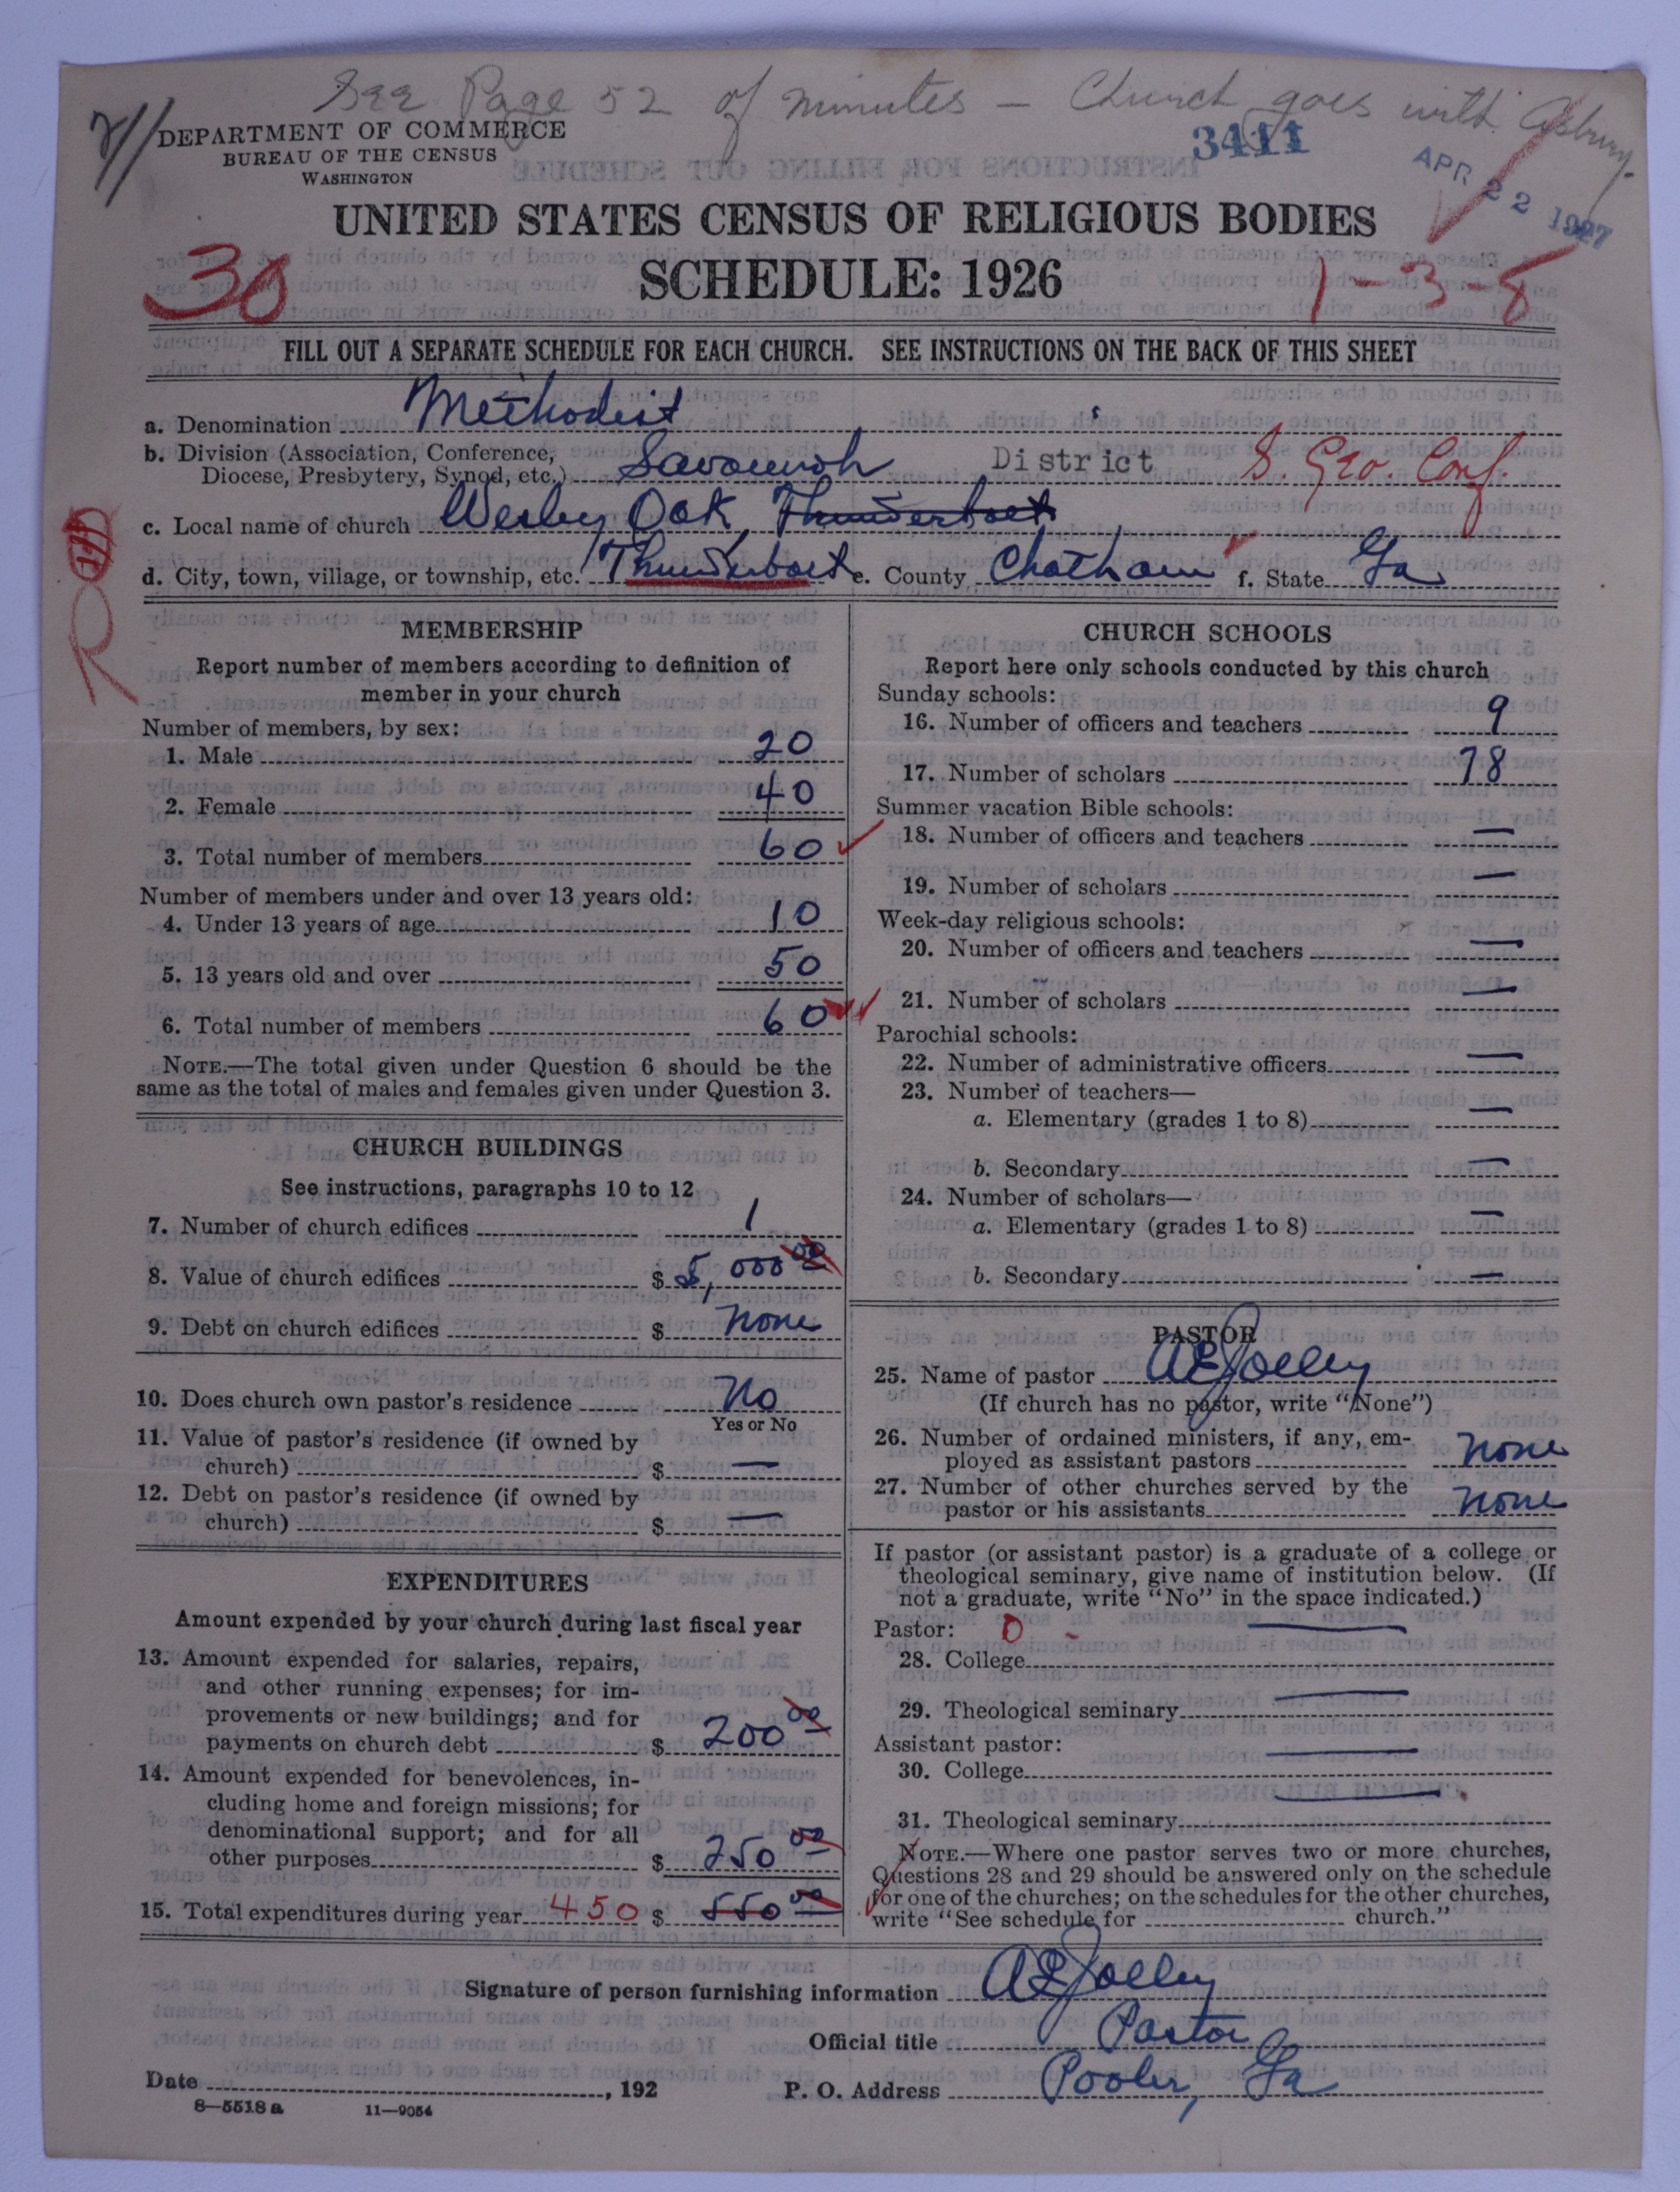 See Page 52 of minutes — Church goes with Asbury.
DEPARTMENT OF COMMERCE
BUREAU OF THE CENSUS
WASHINGTON
3411
APR 22 1927
UNITED STATES CENSUS OF RELIGIOUS BODIES
SCHEDULE: 1926
30
1-3-8
FILL OUT A SEPARATE SCHEDULE FOR EACH CHURCH. SEE INSTRUCTIONS ON THE BACK OF THIS SHEET
a. Denomination Methodist
b. Division (Association, Conference,
Diocese, Presbytery, Synod, etc.) Savannah District S. Geo. Conf.
c. Local name of church Wesley Oak, Thunderbolt
d. City, town, village, or township, etc. Thunderbolt e. County Chatham f. State Ga
MEMBERSHIP
Report number of members according to definition of
member in your church
Number of members, by sex:
1. Male 20
2. Female 40
3. Total number of members 60
Number of members under and over 13 years old:
4. Under 13 years of age 10
5. 13 years old and over 50
6. Total number of members 60
NOTE.—The total given under Question 6 should be the
same as the total of males and females given under Question 3.
CHURCH BUILDINGS
See instructions, paragraphs 10 to 12
7. Number of church edifices 1
8. Value of church edifices $ 5,000 00
9. Debt on church edifices $ none
10. Does church own pastor's residence No
Yes or No
11. Value of pastor's residence (if owned by
church) $ —
12. Debt on pastor's residence (if owned by
church) $ —
EXPENDITURES
Amount expended by your church during last fiscal year
13. Amount expended for salaries, repairs,
and other running expenses; for im-
provements or new buildings; and for
payments on church debt $ 200 00
14. Amount expended for benevolences, in-
cluding home and foreign missions; for
denominational support; and for all
other purposes $ 250 00
15. Total expenditures during year 450 $ 550 00
CHURCH SCHOOLS
Report here only schools conducted by this church
Sunday schools:
16. Number of officers and teachers 9
17. Number of scholars 78
Summer vacation Bible schools:
18. Number of officers and teachers —
19. Number of scholars —
Week-day religious schools:
20. Number of officers and teachers —
21. Number of scholars —
Parochial schools:
22. Number of administrative officers —
23. Number of teachers—
a. Elementary (grades 1 to 8) —
b. Secondary —
24. Number of scholars—
a. Elementary (grades 1 to 8) —
b. Secondary —
PASTOR
25. Name of pastor A E Jolley
(If church has no pastor, write "None")
26. Number of ordained ministers, if any, em-
ployed as assistant pastors none
27. Number of other churches served by the
pastor or his assistants none
If pastor (or assistant pastor) is a graduate of a college or
theological seminary, give name of institution below. (If
not a graduate, write "No" in the space indicated.)
Pastor: 0 -
28. College —
29. Theological seminary —
Assistant pastor:
30. College —
31. Theological seminary —
NOTE.—Where one pastor serves two or more churches,
Questions 28 and 29 should be answered only on the schedule
for one of the churches; on the schedules for the other churches,
write "See schedule for church."
Signature of person furnishing information A E Jolley
Official title Pastor
Date , 192 P. O. Address Pooler, Ga
8—5518 a 11—9054